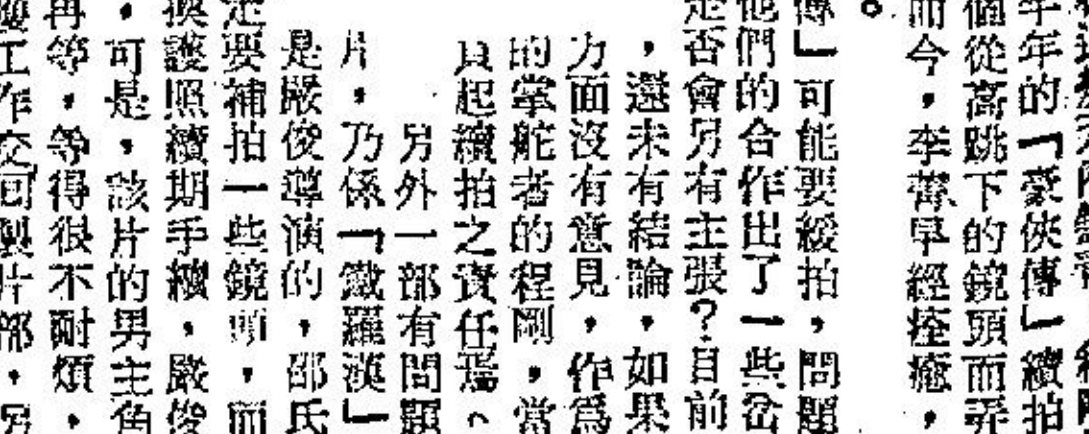 年年的「豪俠傳」續拍
個從高跳下的鏡頭而弄
而今，李菁早經痊癒，
。
傳」可能要緩拍，問題
他們的合作出了一些岔
是否會另有主張？目前
，還未有結論，如果
力面沒有意見，作爲
的掌舵者的程剛，當
負起續拍之責任焉。
另外一部有問題
片，乃係「鐵羅漢」
是嚴俊導演的，邵氏
定要補拍一些鏡頭，而
換護照續期手續，嚴俊
，可是，該片的男主角
再等，等得很不耐煩，
工作交回製片部，另